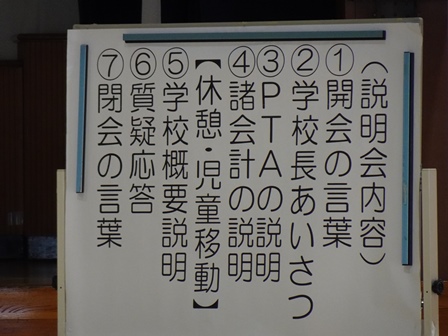 （説明会内容）
①開会の言葉
②学校長あいさつ
③ＰＴＡの説明
④諸会計の説明
【休憩・児童移動】
⑤学校概要説明
⑥質疑応答
⑦閉会の言葉